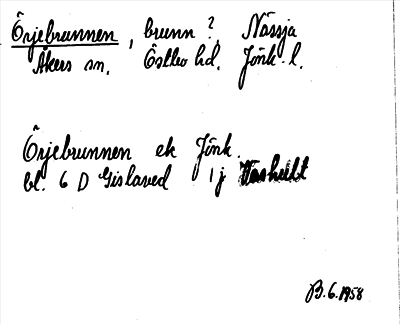 Örjebrunnen, brunn? Nässja
Åkers sn. Östbo hd. Jönk. l.
Örjebrunnen ek Jönk.
bl. 6 D Gislaved 1 j
B.6.1958